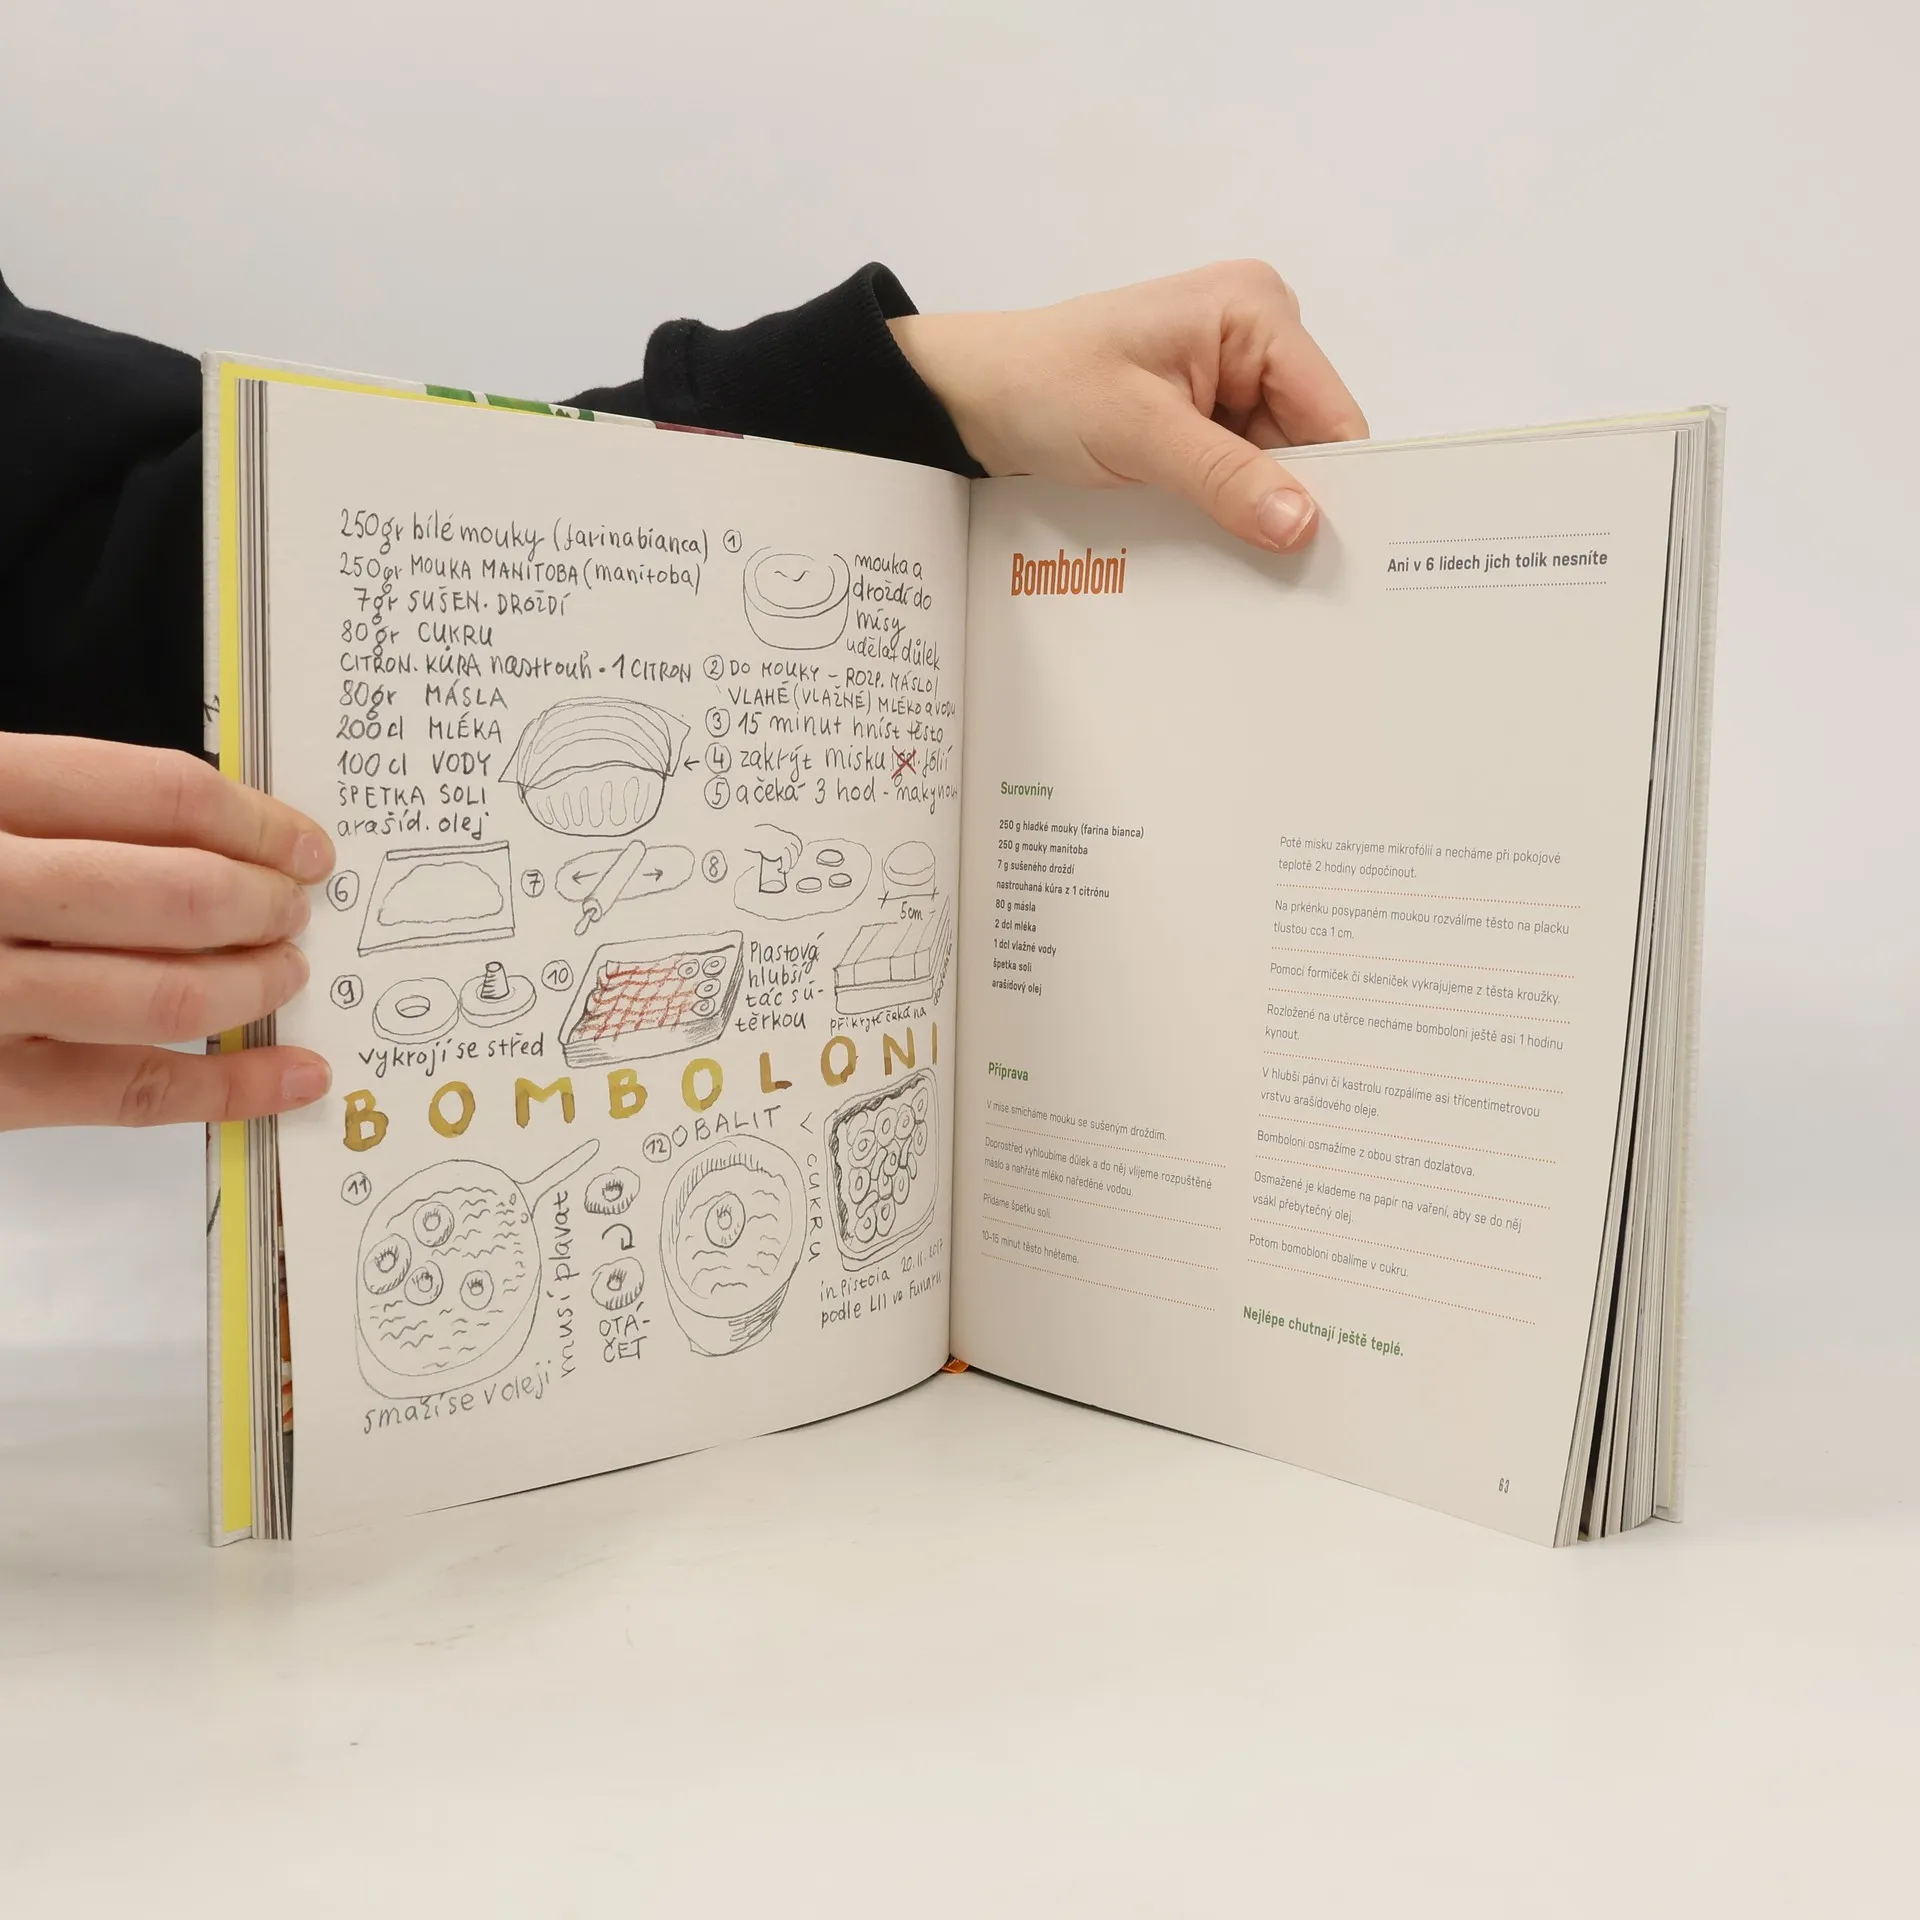 250gr bílé mouky (farina bianca)
250gr MOUKA MANITOBA (manitoba)
7gr SUŠEN. DROŽDÍ
80gr CUKRU
CITRON. KŮRA nastrouh. 1 CITRON
80gr MÁSLA
200cl MLÉKA
100cl VODY
ŠPETKA SOLI
arašíd. olej
1
mouka a
droždí do
mísy
udělat důlek
2 DO MOUKY – ROZP. MÁSLO/
VLAHÉ (VLAŽNÉ) MLÉKO a VODU
3 15 minut hníst těsto
4 zakrýt misku fólií
5 a čeká 3 hod - nakynout
6
7
8
5cm
9
vykrojí se střed
10
Plastová
hlubší
tác s ú-
těrkou
přikryté čeká na
BOMBOLONI
11
smaží se v oleji
musí plavat
OTÁ-
ČET
12 OBALIT
V CUKRU
in Pistoia 20.11.2017
podle LII ve Funaru
Bomboloni
Ani v 6 lidech jich tolik nesníte
Suroviny
250 g hladké mouky (farina bianca)
250 g mouky manitoba
7 g sušeného droždí
nastrouhaná kůra z 1 citrónu
80 g másla
2 dcl mléka
1 dcl vlažné vody
špetka soli
arašídový olej
Příprava
V míse smícháme mouku se sušeným droždím.
Doprostřed vyhloubíme důlek a do něj vlijeme rozpuštěné
máslo a nahřáté mléko naředěné vodou.
Přidáme špetku soli.
10-15 minut těsto hněteme.
Poté misku zakryjeme mikrofólií a necháme při pokojové
teplotě 2 hodiny odpočinout.
Na prkénku posypaném moukou rozválíme těsto na placku
tlustou cca 1 cm.
Pomocí formiček či skleniček vykrajujeme z těsta kroužky.
Rozložené na utěrce necháme bomboloni ještě asi 1 hodinu
kynout.
V hlubší pánvi či kastrolu rozpálíme asi třícentimetrovou
vrstvu arašídového oleje.
Bomboloni osmažíme z obou stran dozlatova.
Osmažené je klademe na papír na vaření, aby se do něj
vsákl přebytečný olej.
Potom bomobloni obalíme v cukru.
Nejlépe chutnají ještě teplé.
63